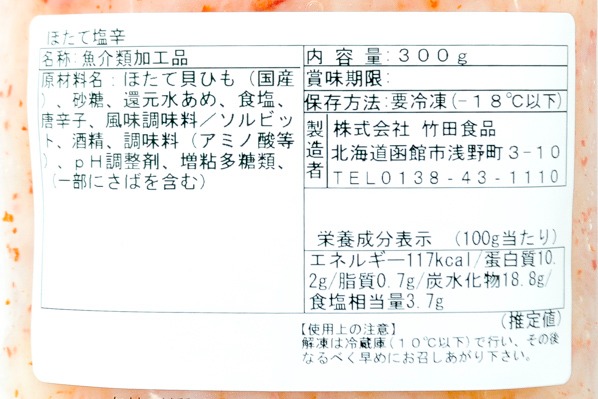 ほたて塩辛
名称:魚介類加工品
原材料名:ほたて貝ひも(国産
)、砂糖、還元水あめ、食塩、
唐辛子、風味調味料/ソルビッ
ト、酒精、調味料(アミノ酸等
)、pH調整剤、増粘多糖類、
(一部にさばを含む)
内容量:300g
賞味期限:
保存方法:要冷凍(-18℃以下)
製造者
株式会社 竹田食品
北海道函館市浅野町3-10
TEL0138-43-1110
栄養成分表示 (100g当たり)
エネルギー117kcal/蛋白質10.
2g/脂質0.7g/炭水化物18.8g/
食塩相当量3.7g
(推定値)
【使用上の注意】
解凍は冷蔵庫(10℃以下)で行い、その後
なるべく早めにお召しあがり下さい。